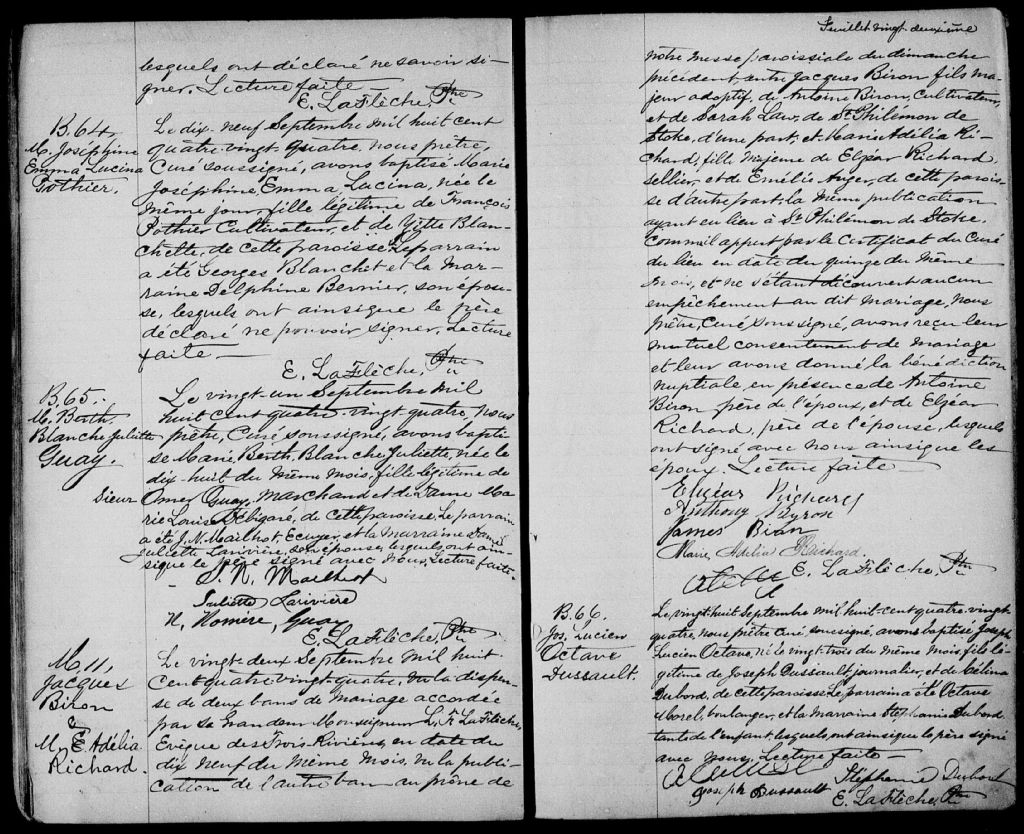 lesquels ont déclaré ne savoir si-
gner. Lecture faite
E. LaFlèche, Ptre
B.64.
M. Joséphine
Emma Lucina
Pothier.
Le dix-neuf Septembre mil huit cent
quatre vingt quatre, nous prêtre,
Curé soussigné, avons baptisé Marie
Joséphine, Emma, Lucina, née le
même jour, fille légitime de François
Pothier Cultivateur, et de Blan-
chette, de cette paroisse. Le parrain
a été Georges Blanchet et la mar-
raine Delphine Bernier, son épou-
se, lesquels ont ainsi que le père
déclaré ne pouvoir signer. Lecture
faite
E. LaFlèche, Ptre
B.65.
M. Berth.
Blanche Juliette
Guay.
Le vingt-un Septembre mil
huit cent quatre-vingt quatre, nous
prêtre, Curé soussigné, avons bapti-
sé Marie, Berth, Blanche, Juliette, née le
dix-huit du même mois, fille légitime de
Sieur Omer Guay, Marchand et de Dame Ma-
rie Louise Bébigaré, de cette paroisse. Le parrain
a été J. N. Mailhot, Ecuyer, et la Marraine Dame
Juliette Larivière, son épouse, lesquels ont ain-
si que le père signé avec nous, Lecture faite.
J. N. Mailhot
Juliette Larivière
N. Homère, Guay
E. LaFlèche, Ptre
M. 11.
Jacques
Biron
&
M. E. Adélia
Richard.
Le vingt-deux Septembre mil huit
cent quatre-vingt quatre, vu la dispen-
se de deux bans de mariage accordée
par Sa Grandeur Monseigneur L. F. LaFlèche,
Evêque des Trois-Rivières, en date du
dix neuf du même mois, vu la publi-
cation de l'autre ban au prône de
Feuillet vingt deuxième
notre messe paroissiale du dimanche
précédent entre Jacques Biron fils ma-
jeur adoptif, de Antoine Biron, Cultivateur,
et de Sarah Law, de St. Philémon de
Stoke, d'une part, et Marie Adélia Ri-
chard, fille majeure de Elzéar Richard
sellier, et de Emélie Auger, de cette parois-
se d'autre part, la même publication
ayant eu lieu à St. Philémon de Stoke,
Comme il appert par le Certificat du Curé
du lieu en date du quinze du même
mois, et ne s'étant découvert aucun
empêchement au dit mariage, nous
prêtre, Curé soussigné, avons reçu leur
mutuel consentement de mariage
et leur avons donné la bénédiction
nuptiale en présence de Antoine
Biron père de l'époux, et de Elzéar
Richard, père de l'épouse, lesquels
ont signé avec nous ainsi que les
époux. Lecture faite
Elzéar Richard
Anthony Byron
James Biron
Marie Adélia Richard.
E. LaFlèche, Ptre
B.66.
Jos. Lucien
Octave
Dussault.
Le vingt-huit Septembre mil huit-cent quatre-vingt
quatre, nous prêtre curé, soussigné, avons baptisé Joseph
Lucien Octave, né le vingt-trois du même mois, fils lé-
gitime de Joseph Dussault, journalier, et de Célina
Dubord, de cette paroisse. Le parrain a été Octave
Morel, boulanger, et la marraine Stéphanie Dubord
tante de l'enfant, lesquels ont ainsi que le père signé
avec nous. Lecture faite
Stéphanie Dubord
Joseph Dussault
E. LaFlèche, Ptre